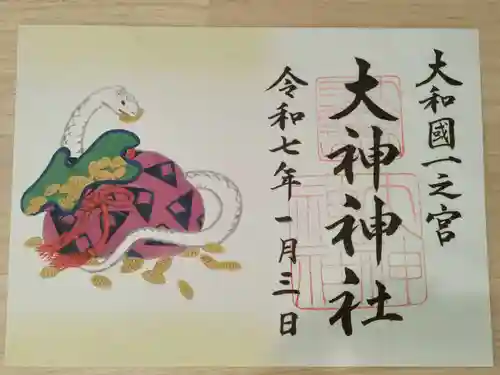 大和國一之宮
大神神社
令和七年一月三日